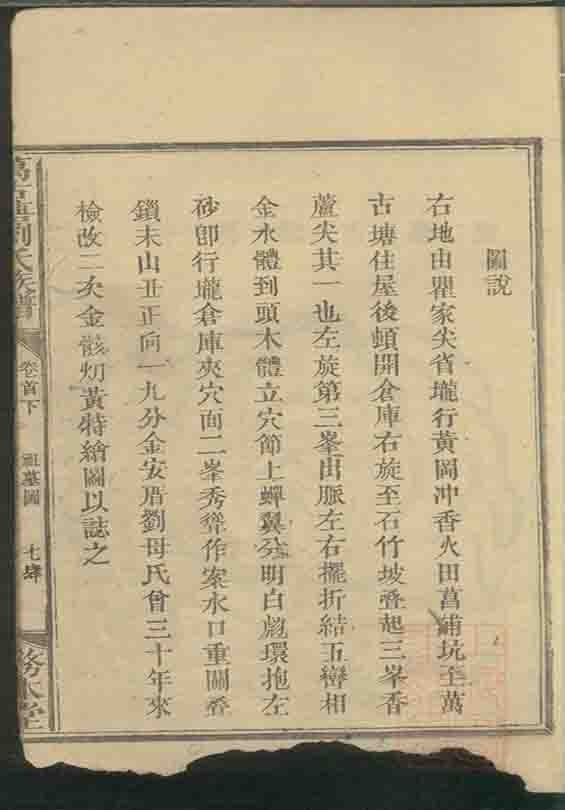 圖說
右地由瞿家尖省壠行黃岡冲香火田菖蒲坑至萬
古塘住屋後頓開倉庫右旋至石竹坡叠起三峯香
蘆尖其一也左旋第三峯出脈左右擺折結五巒相
金水體到頭木體立穴節上蟬翼分明白彪環抱左
砂卽行壠倉庫夾穴面二峯秀聳作案水口重關叠
鎖未山丑正向一九分金安厝劉母氏曾三十年來
檢改二次金骸灯黃特繪圖以誌之
劉氏族譜
卷首下
祖墓圖
七肆